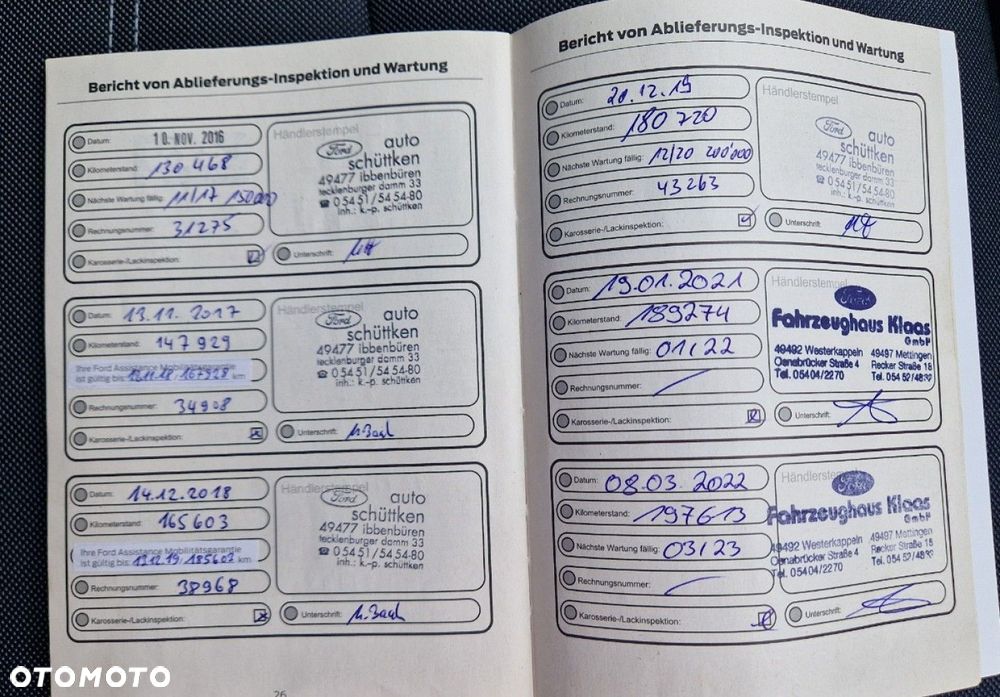 Bericht von Ablieferungs-Inspektion und Wartung
Datum: 10. NOV. 2016
Kilometerstand: 130 468
Nächste Wartung fällig: 11/17 150000
Rechnungsnummer: 31275
Karosserie-/Lackinspektion:
Händlerstempel
Ford auto
schüttken
49477 ibbenbüren
tecklenburger damm 33
☎ 05451/5454-80
inh.: k.-p. schüttken
Unterschrift:
Datum: 13.11.2017
Kilometerstand: 147 929
Ihre Ford Assistance Mobilitätsgarantie
ist gültig bis: 13.11.18/167929 km
Rechnungsnummer: 34908
Karosserie-/Lackinspektion:
Händlerstempel
Ford auto
schüttken
49477 ibbenbüren
tecklenburger damm 33
☎ 05451/5454-80
inh.: k.-p. schüttken
Unterschrift:
Datum: 14.12.2018
Kilometerstand: 165603
Ihre Ford Assistance Mobilitätsgarantie
ist gültig bis: 13.12.19/185603 km
Rechnungsnummer: 38968
Karosserie-/Lackinspektion:
Händlerstempel
Ford auto
schüttken
49477 ibbenbüren
tecklenburger damm 33
☎ 05451/5454-80
inh.: k.-p. schüttken
Unterschrift:
26
Bericht von Ablieferungs-Inspektion und Wartung
Datum: 20.12.19
Kilometerstand: 180 720
Nächste Wartung fällig: 12/20 200'000
Rechnungsnummer: 43263
Karosserie-/Lackinspektion:
Händlerstempel
Ford auto
schüttken
49477 ibbenbüren
tecklenburger damm 33
☎ 05451/5454-80
inh.: k.-p. schüttken
Unterschrift:
Datum: 19.01.2021
Kilometerstand: 189274
Nächste Wartung fällig: 01/22
Rechnungsnummer:
Karosserie-/Lackinspektion:
Händlerstempel
Ford
Fahrzeughaus Klaas
GmbH
49492 Westerkappeln 49497 Mettingen
Osnabrücker Straße 4 Recker Straße 18
Tel. 05404/2270 Tel. 05452/4832
Unterschrift:
Datum: 08.03.2022
Kilometerstand: 197613
Nächste Wartung fällig: 03/23
Rechnungsnummer:
Karosserie-/Lackinspektion:
Händlerstempel
Ford
Fahrzeughaus Klaas
GmbH
49492 Westerkappeln 49497 Mettingen
Osnabrücker Straße 4 Recker Straße 18
Tel. 05404/2270 Tel. 05452/4832
Unterschrift:
OTOMOTO